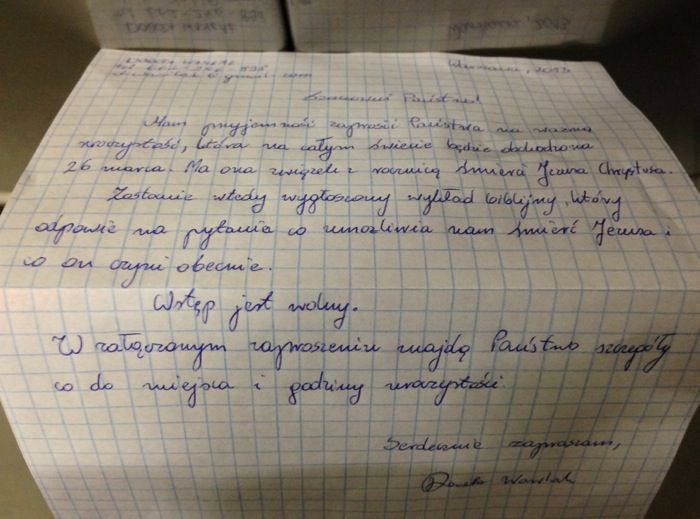 Warszawa, 2013
Warszawa, 2013
gmail.com
Szanowni Państwo!
Mam przyjemność zaprosić Państwa na ważną
uroczystość, która na całym świecie będzie obchodzona
26 marca. Ma ona związek z rocznicą śmierci Jezusa Chrystusa.
Zostanie wtedy wygłoszony wykład biblijny, który
odpowie na pytania co umożliwia nam śmierć Jezusa i
co on czyni obecnie.
Wstęp jest wolny.
W załączonym zaproszeniu znajdą Państwo szczegóły
co do miejsca i godziny uroczystości.
Serdecznie zapraszam,